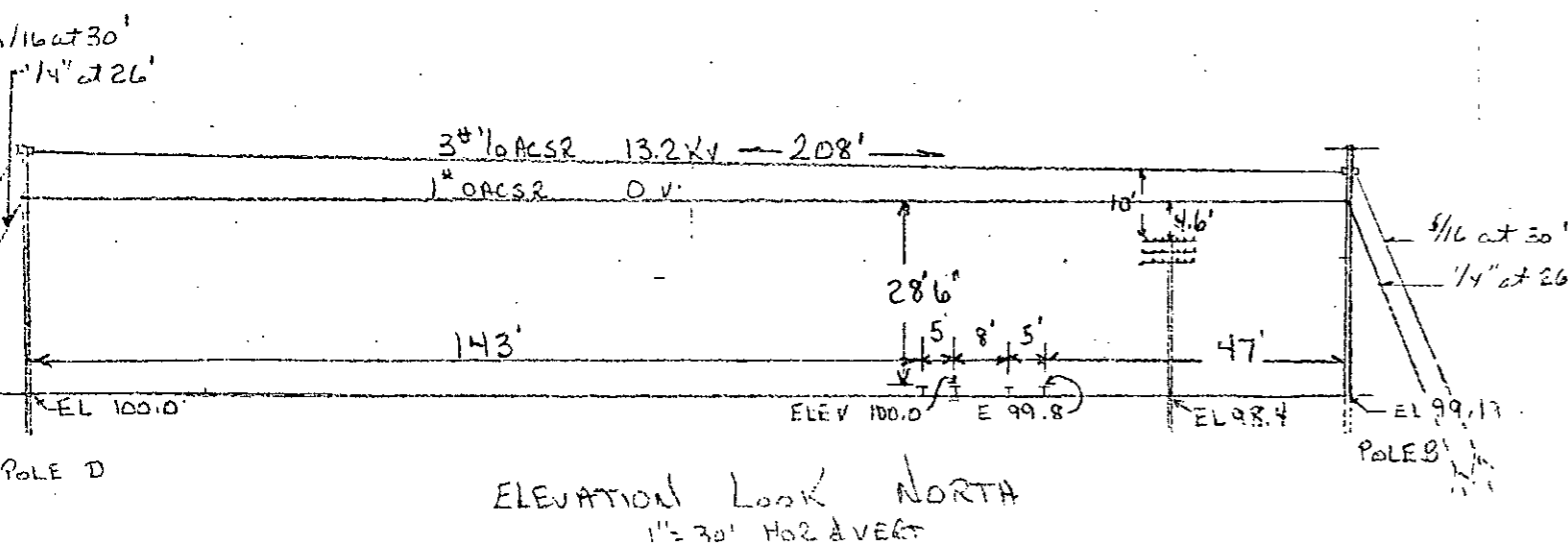 /16 at 30'
1/4" at 26'
3# 1/0 ACSR 13.2 KV 208'
1# 0 ACSR 0 V.
10'
4.6'
5/16 at 30'
1/4" at 26
28'6"
143'
5'
8'
5'
47'
EL 100.0
ELEV 100.0
E 99.8
EL 98.4
EL 99.13
POLE D
POLE B
ELEVATION LOOK NORTH
1"=30' HOR & VERT